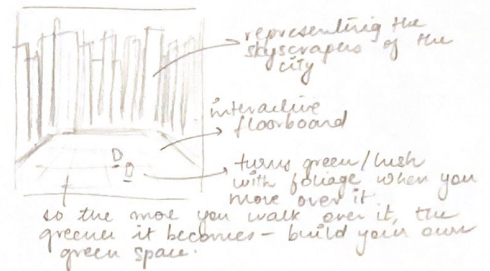 representing the
skyscrapers of the
city
interactive
floorboard
turns green/lush
with foliage when you
move over it.
so the more you walk over it, the
greener it becomes - build your own
green space.